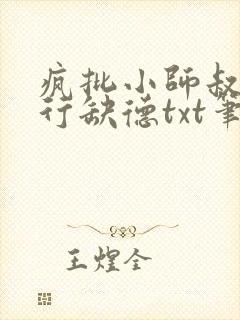 疯批小師叔
行缺德txt筆
王煌全